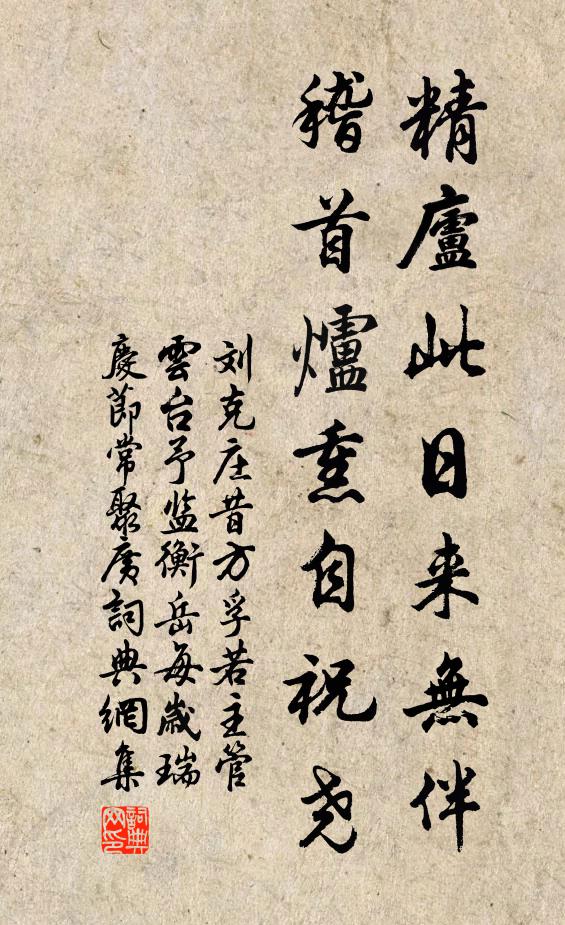 精廬此日来無伴
稽首爐熏自祝尧
刘克庄昔方孚若主管
雲台予监衡岳每歳瑞
慶節常聚廣詞典網集
詞典
网印